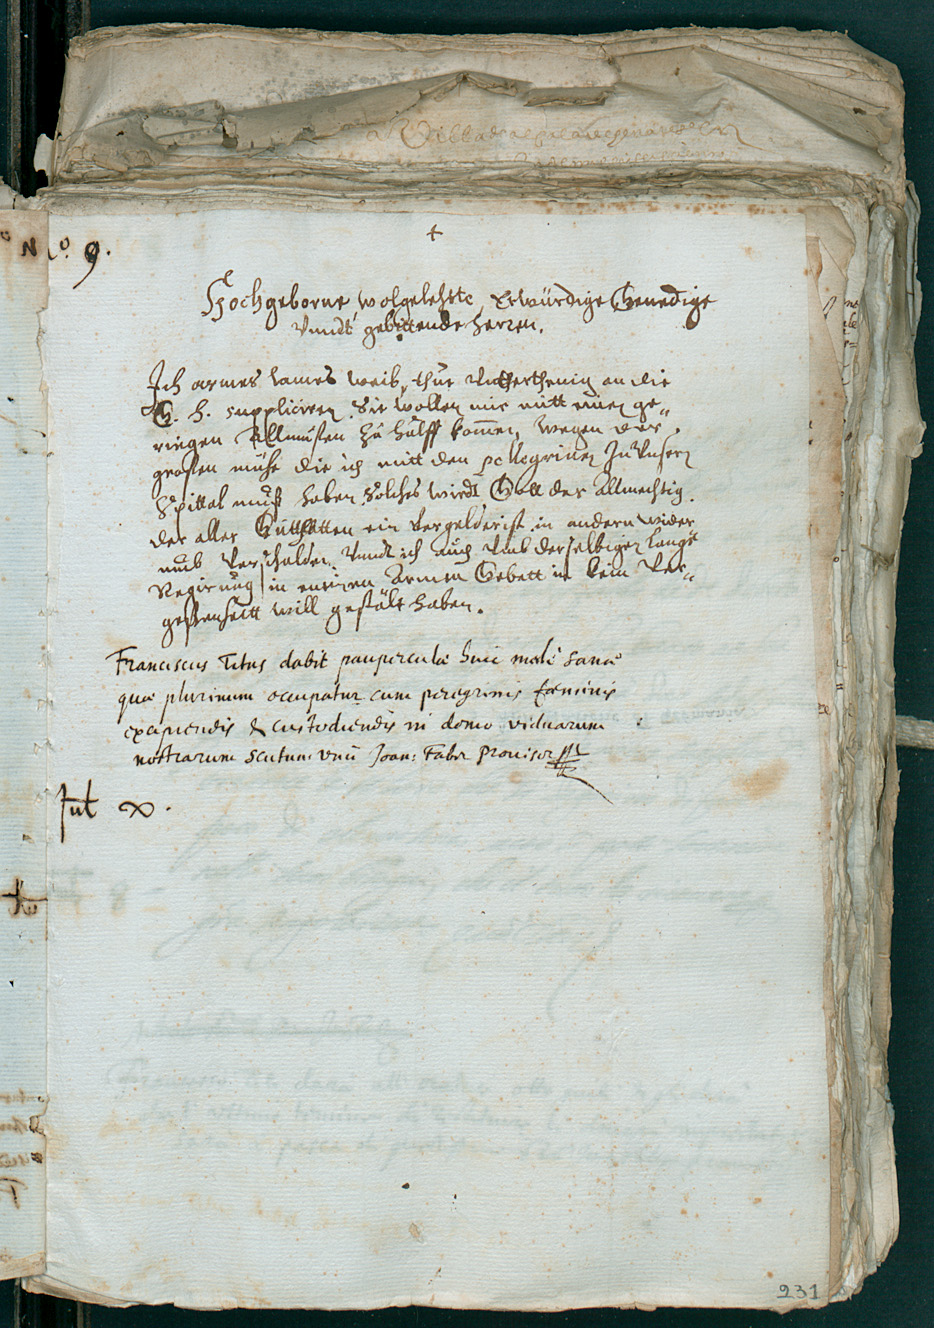 No. 9.
+
Hochgeborne wolgelehrte, Erwürdige Genedige
vnndt gebittende herren.
Ich armes lames weib, thue vnterthenig an die
G. h. suppliciren Sie wollen mir mitt einen ge„
ringen Allmusen zu hülff kommen, wegen der
grossen mühe die ich mitt den pellegrinen In vnsern
Spittal muß haben, solches wirdt Gott der Allmechtig
der aller Gutthatten ein vergelder ist, in andern wider
umb verschulden, vnndt ich auch vmb derselbigen lange
Regirung in meinen Armen Gebett in kein ver„
gessenheitt will gestält haben.
Franciscus Titus dabit pauperculæ huic malè sanæ
quæ plurimum occupatur cum peregrinis fœminis
excipiendis & custodiendis in domo viduarum
nostrarum scutum unū Joan: Faber Provisor
231